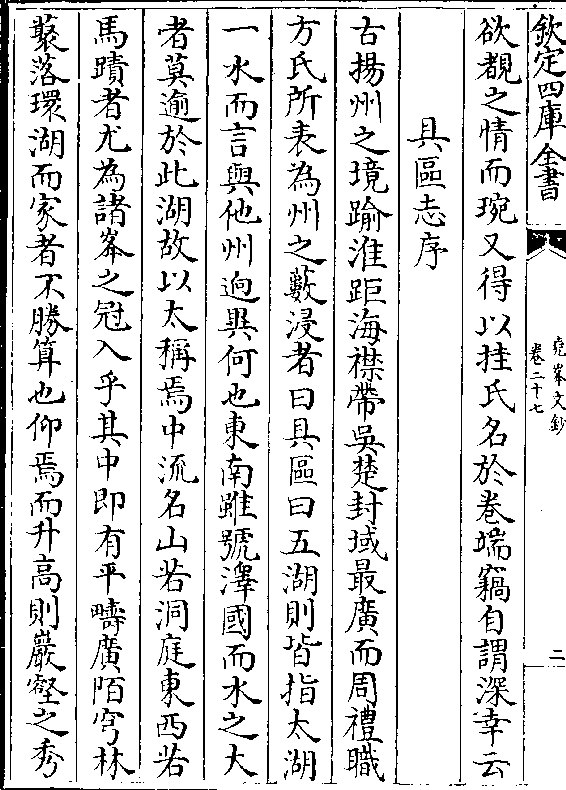 欽定四庫全書
堯峯文鈔
卷二十七
二
欲覩之情而琬又得以挂氏名於卷端竊自謂深幸云
具區志序
古揚州之境踰淮距海襟帶吳楚封域最廣而周禮職
方氏所表為州之藪浸者曰具區曰五湖則皆指太湖
一水而言與他州逈異何也東南雖號澤國而水之大
者莫逾於此湖故以太稱焉中流名山若洞庭東西若
馬蹟者尤為諸峯之冠入乎其中即有平疇廣陌穹林
聚落環湖而家者不勝算也仰焉而升高則巖壑之秀